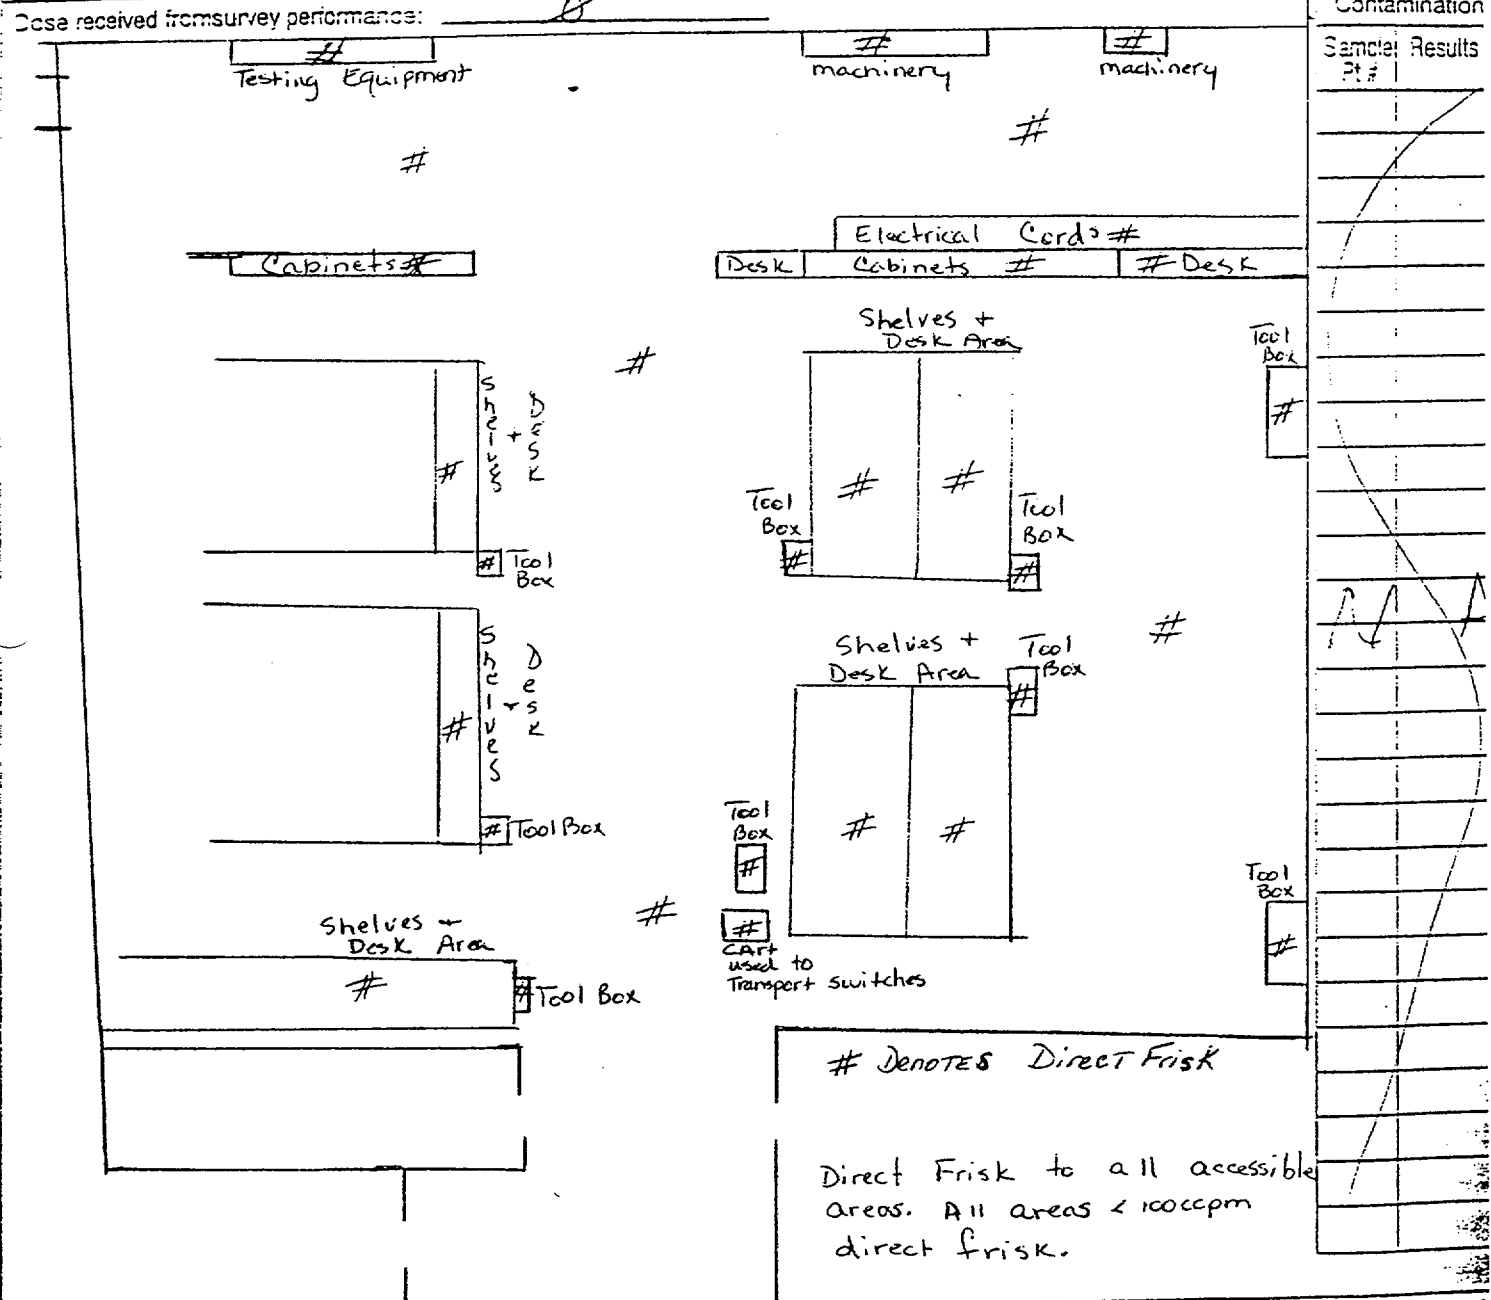 Dose received from survey performance: Ø
Contamination
Sample Results
Pt #
#
Testing Equipment
#
machinery
#
machinery
#
#
Electrical Cords #
Cabinets #
Desk
Cabinets #
# Desk
Shelves +
Desk Area
Tool
Box
#
#
Shelves + Desk
#
# #
Tool
Box
#
Tool
Box
#
# Tool
Box
#
Shelves +
Desk Area
Tool
Box
#
Shelves + Desk
#
# Tool Box
Tool
Box
#
# #
Tool
Box
#
#
Shelves +
Desk Area
#
# Tool Box
#
CArt
used to
Transport switches
# DENOTES Direct Frisk
Direct Frisk to all accessible
areas. All areas < 100ccpm
direct frisk.